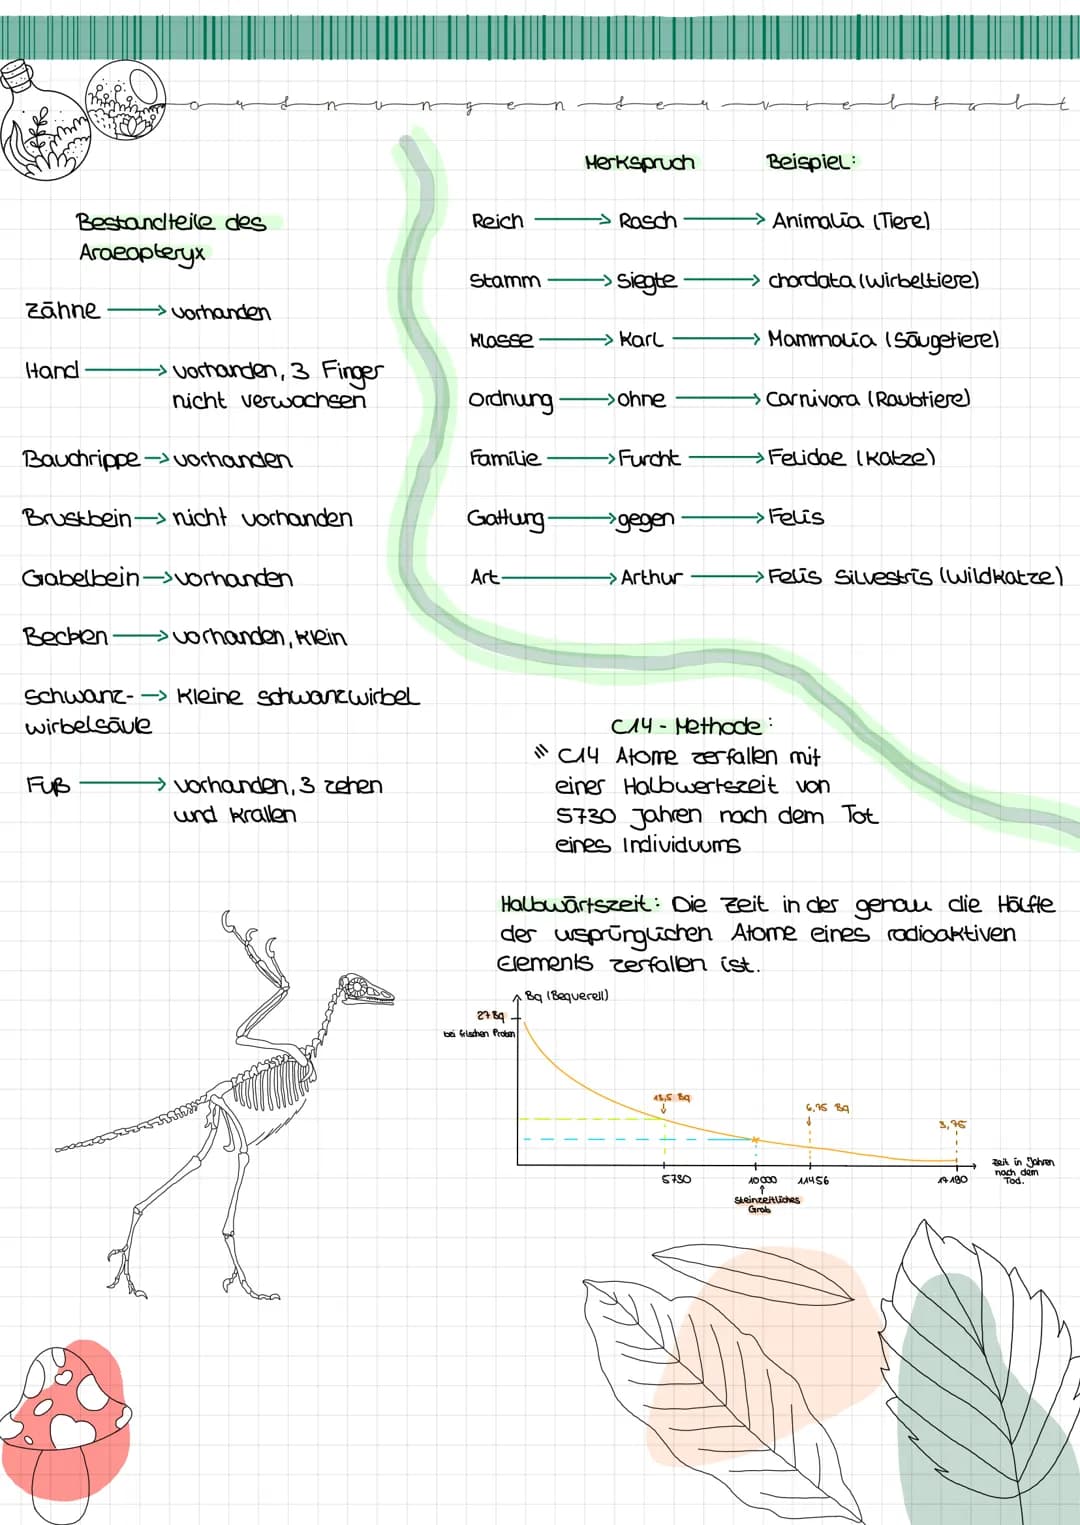 ordnungen der vielfalt
Bestandteile des
Araeopteryx
Zähne → vorhanden
Hand → vorhanden, 3 Finger
nicht verwachsen
Bauchrippe → vorhanden
Brustbein → nicht vorhanden
Gabelbein → vorhanden
Becken → vorhanden, klein
Schwanz- → kleine schwanzwirbel
wirbelsäule
Fuß → vorhanden, 3 zehen
und krallen
Merkspruch Beispiel:
Reich → Rasch → Animalia (Tiere)
Stamm → Siegte → chordata (Wirbeltiere)
Klasse → Karl → Mammalia (Säugetiere)
Ordnung → ohne → Carnivora (Raubtiere)
Familie → Furcht → Felidae (Katze)
Gattung → gegen → Felis
Art → Arthur → Felis Silvestris (Wildkatze)
C14 - Methode:
C14 Atome zerfallen mit
einer Halbwertszeit von
5730 Jahren nach dem Tot
eines Individuums
Halbwärtszeit: Die Zeit in der genau die Hälfte
der ursprünglichen Atome eines radioaktiven
Elements zerfallen ist.
Bq (Bequerell)
27 Bq
bei frischen Proben
13,5 Bq
6,75 Bq
3,75
5730
10 000
11456
17 190
Zeit in Jahren
nach dem
Tod.
Steinzeitliches
Grab